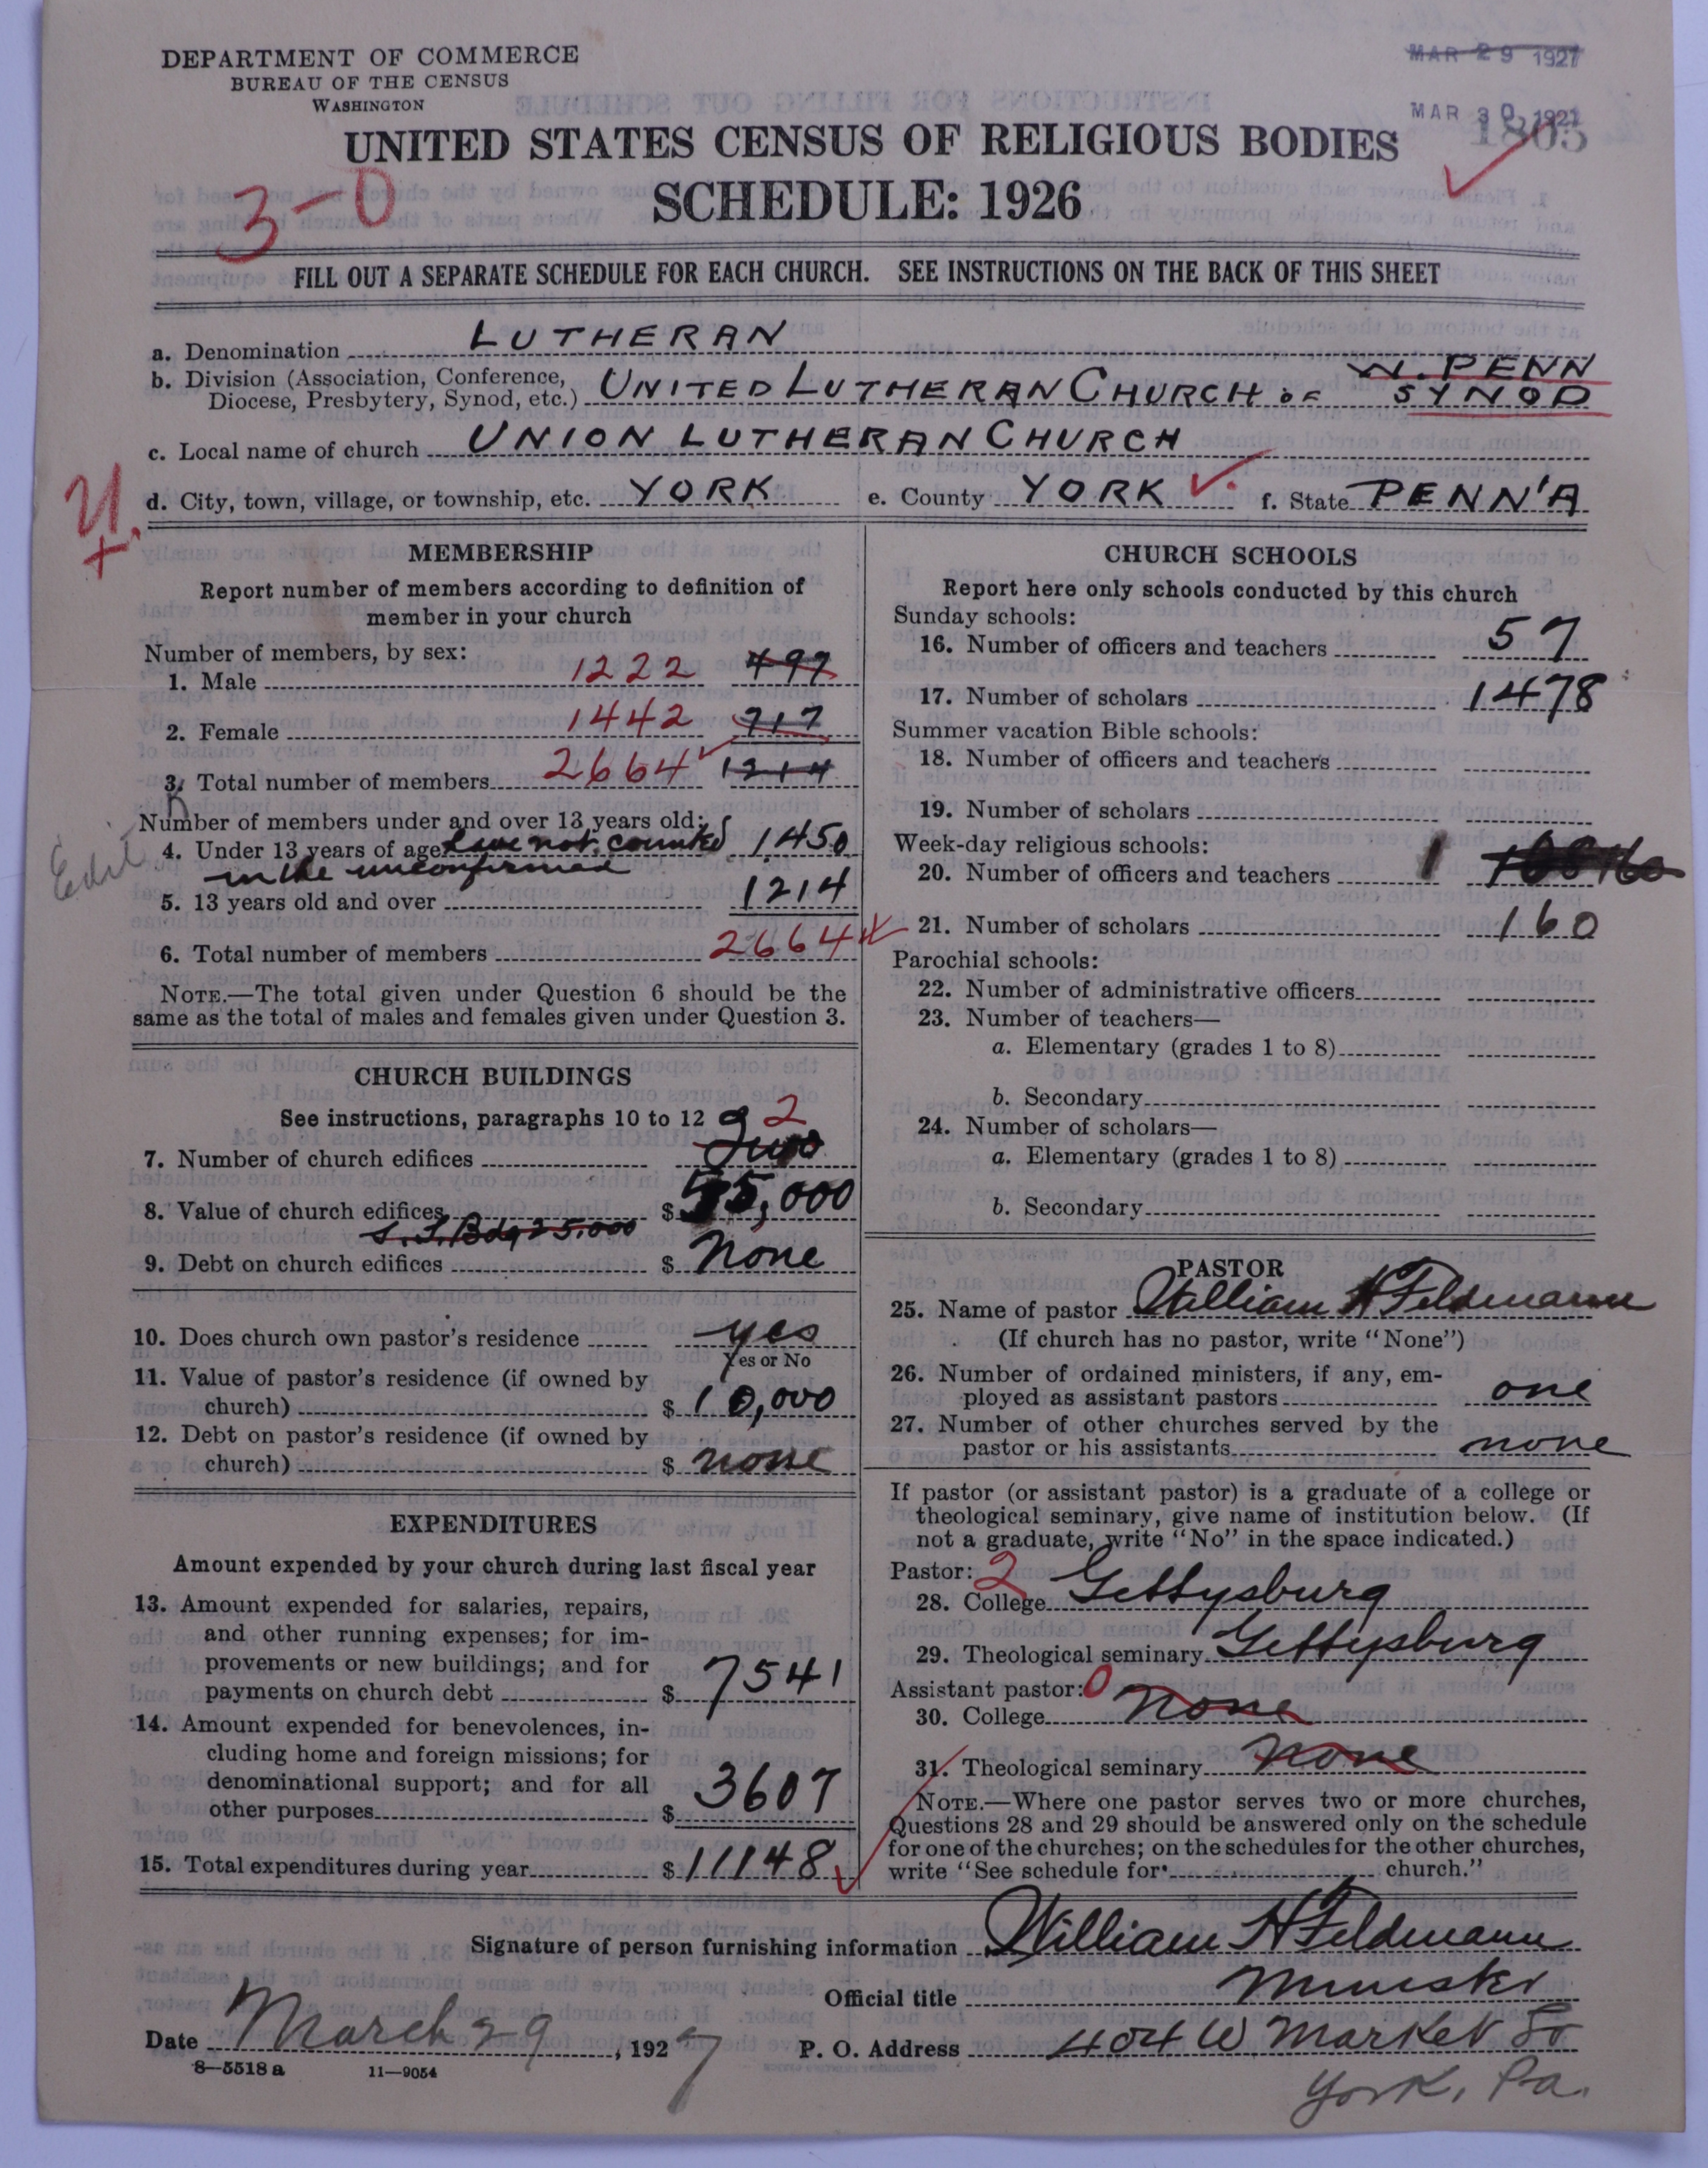 DEPARTMENT OF COMMERCE
BUREAU OF THE CENSUS
WASHINGTON
MAR 29 1927
MAR 30 1927
1805
UNITED STATES CENSUS OF RELIGIOUS BODIES
SCHEDULE: 1926
3-0
FILL OUT A SEPARATE SCHEDULE FOR EACH CHURCH. SEE INSTRUCTIONS ON THE BACK OF THIS SHEET
a. Denomination LUTHERAN
b. Division (Association, Conference, Diocese, Presbytery, Synod, etc.) UNITED LUTHERAN CHURCH OF W. PENN SYNOD
c. Local name of church UNION LUTHERAN CHURCH
d. City, town, village, or township, etc. YORK e. County YORK f. State PENN'A
MEMBERSHIP
Report number of members according to definition of
member in your church
Number of members, by sex:
1. Male 1222 497
2. Female 1442 717
3. Total number of members 2664 1214
Number of members under and over 13 years old:
Edit
4. Under 13 years of age have not counted 1450
in the unconfirmed
5. 13 years old and over 1214
6. Total number of members 2664
NOTE.—The total given under Question 6 should be the
same as the total of males and females given under Question 3.
CHURCH BUILDINGS
See instructions, paragraphs 10 to 12
2
7. Number of church edifices Two
8. Value of church edifices $ 55,000
S.S. Bdg 25.000
9. Debt on church edifices $ None
10. Does church own pastor's residence yes
Yes or No
11. Value of pastor's residence (if owned by
church) $ 10,000
12. Debt on pastor's residence (if owned by
church) $ none
EXPENDITURES
Amount expended by your church during last fiscal year
13. Amount expended for salaries, repairs,
and other running expenses; for im-
provements or new buildings; and for
payments on church debt $ 7541
14. Amount expended for benevolences, in-
cluding home and foreign missions; for
denominational support; and for all
other purposes $ 3607
15. Total expenditures during year $ 11148
CHURCH SCHOOLS
Report here only schools conducted by this church
Sunday schools:
16. Number of officers and teachers 57
17. Number of scholars 1478
Summer vacation Bible schools:
18. Number of officers and teachers
19. Number of scholars
Week-day religious schools:
20. Number of officers and teachers 1 160
21. Number of scholars 160
Parochial schools:
22. Number of administrative officers
23. Number of teachers—
a. Elementary (grades 1 to 8)
b. Secondary
24. Number of scholars—
a. Elementary (grades 1 to 8)
b. Secondary
PASTOR
25. Name of pastor William H Feldmann
(If church has no pastor, write "None")
26. Number of ordained ministers, if any, em-
ployed as assistant pastors one
27. Number of other churches served by the
pastor or his assistants none
If pastor (or assistant pastor) is a graduate of a college or
theological seminary, give name of institution below. (If
not a graduate, write "No" in the space indicated.)
Pastor: 2
28. College Gettysburg
29. Theological seminary Gettysburg
Assistant pastor: 0
30. College none
31. Theological seminary none
NOTE.—Where one pastor serves two or more churches,
Questions 28 and 29 should be answered only on the schedule
for one of the churches; on the schedules for the other churches,
write "See schedule for church."
Signature of person furnishing information William H Feldmann
Official title Minister
Date March 29, 1927 P. O. Address 404 W Market St
York, Pa.
8—5518 a 11—9054